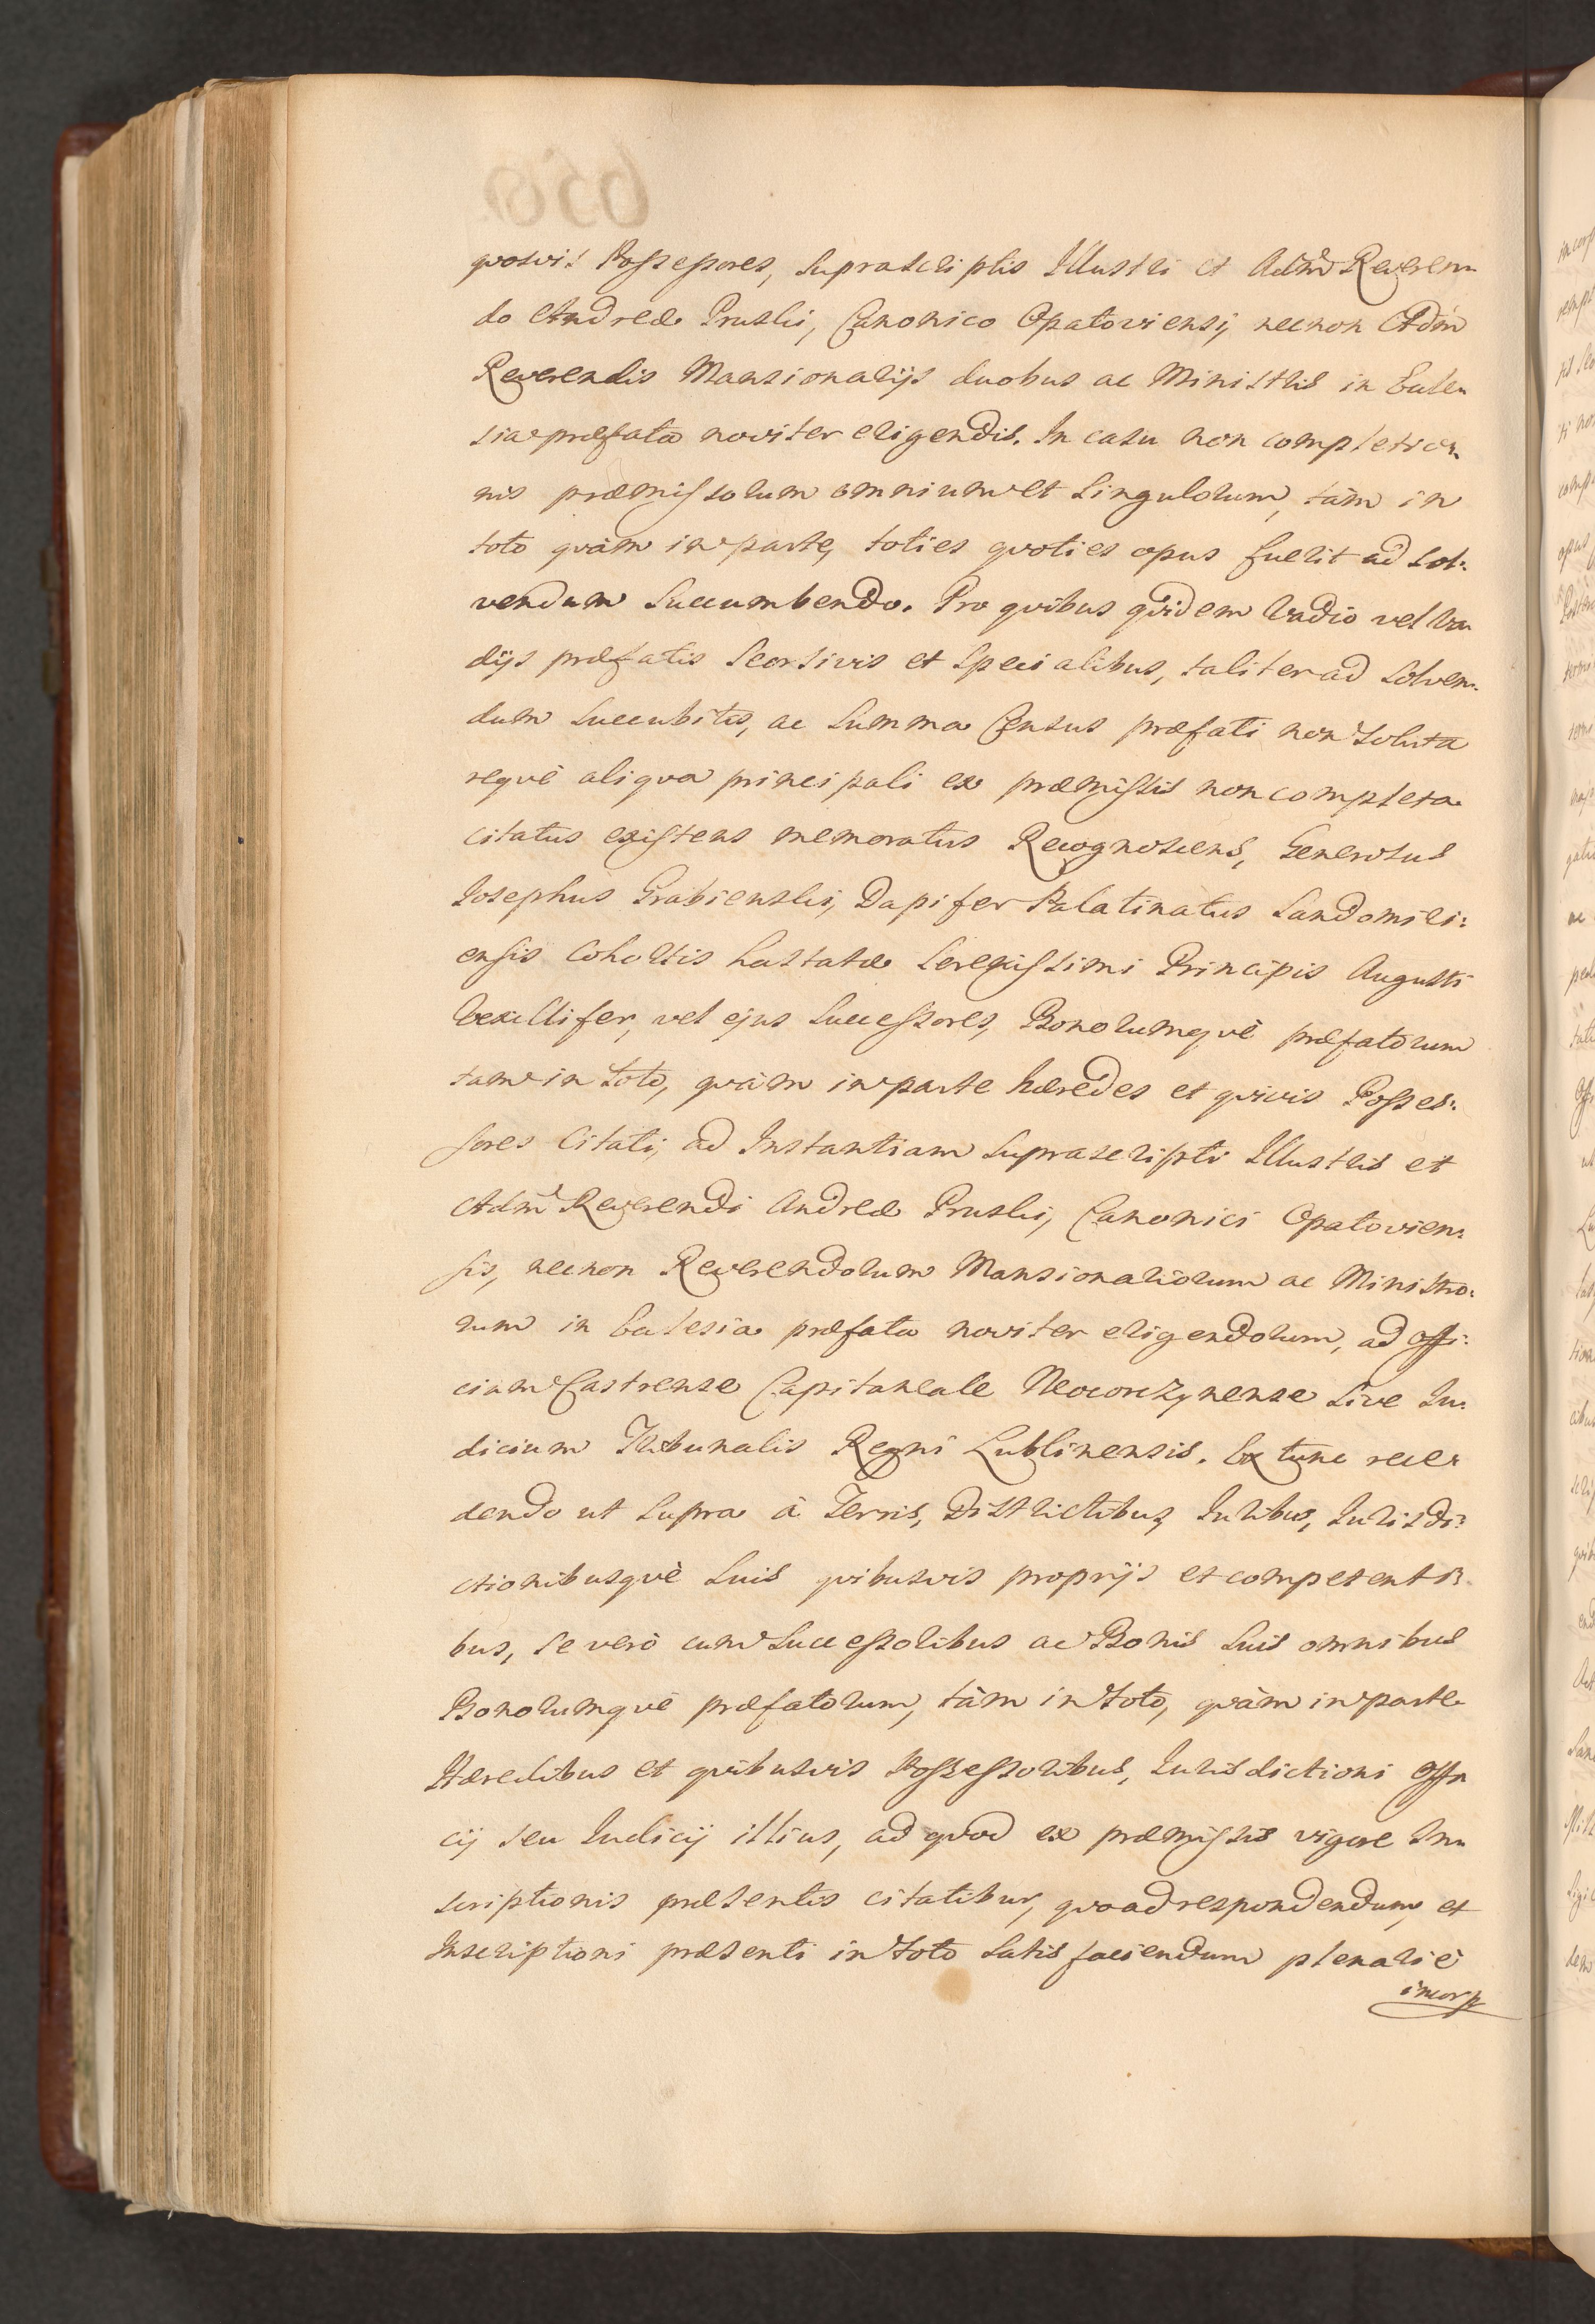 quosvis Possessores, suprascriptis Illustri et Adm̃ Reveren-
do Andreæ Pruski, Canonico Opatoviensi, necnon Adm̃
Reverendis Mansionarijs duobus ac Ministris in Eccle-
sia præfata noviter eligendis. In casu non completio-
nis præmissorum omnium et singulorum, tàm in
toto quàm in parte, toties quoties opus fuerit ad sol:
vendum succumbendo. Pro quibus quidem Vadio vel Va-
dijs præfatis seorsivis et specialibus, taliter ad solven:
dum succubitis, ac summa Census præfati non soluta
requè aliqua principali ex præmissis non completa
citatus existens memoratus Recognoscens, Generosus
Josephus Grabienski, Dapifer Palatinatus Sandomiri:
ensis Cohortis hastatæ Serenissimi Principis Augusti
Vexillifer, vel ejus Successores, Bonorumquè præfatorum
tam in toto, quàm in parte hæredes et quivis Posses:
sores Citati, ad Instantiam suprascripti Illustris et
Adm̃ Reverendi Andreæ Pruski, Canonici Opatovien:
sis, necnon Reverendorum Mansionariorum ac Ministro:
rum in Eclesia præfata noviter eligendorum, ad Offi:
cium Castrense Capitaneale Neocorczynense sive Iu:
dicium Tribunalis Regni Lublinensis. Ex tunc rece-
dendo ut supra à Terris, Districtibus, Iuribus, Iurisdi:
ctionibusquè suis quibusvis proprijs et competenti-
bus, se verò cum Successoribus ac Bonis suis omnibus
Bonorumquè præfatorum, tàm in toto, quàm in parte
Hæredibus et quibusvis Possessoribus, Iurisdictioni Offi-
cij seu Iudicij illius, ad quod ex præmissis vigore In-
scriptionis præsentis citatibur, quoad respondendum, et
Inscriptioni præsenti in toto satisfaciendum plenariè
incorp